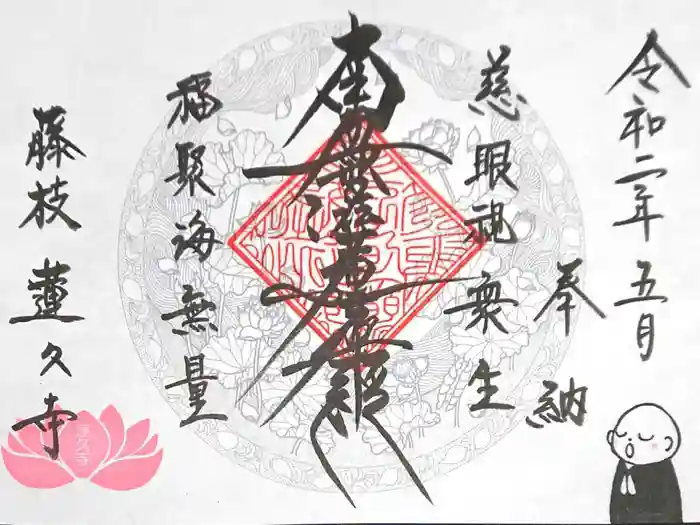 令和二年五月
奉納
慈眼視衆生
南無妙法蓮華経
福聚海無量
藤枝 蓮久寺
蓮久寺